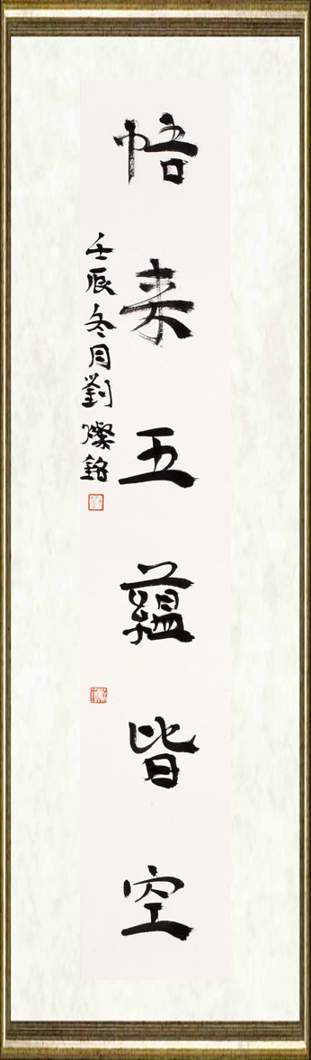 悟来五蕴皆空
壬辰冬月劉燦銘